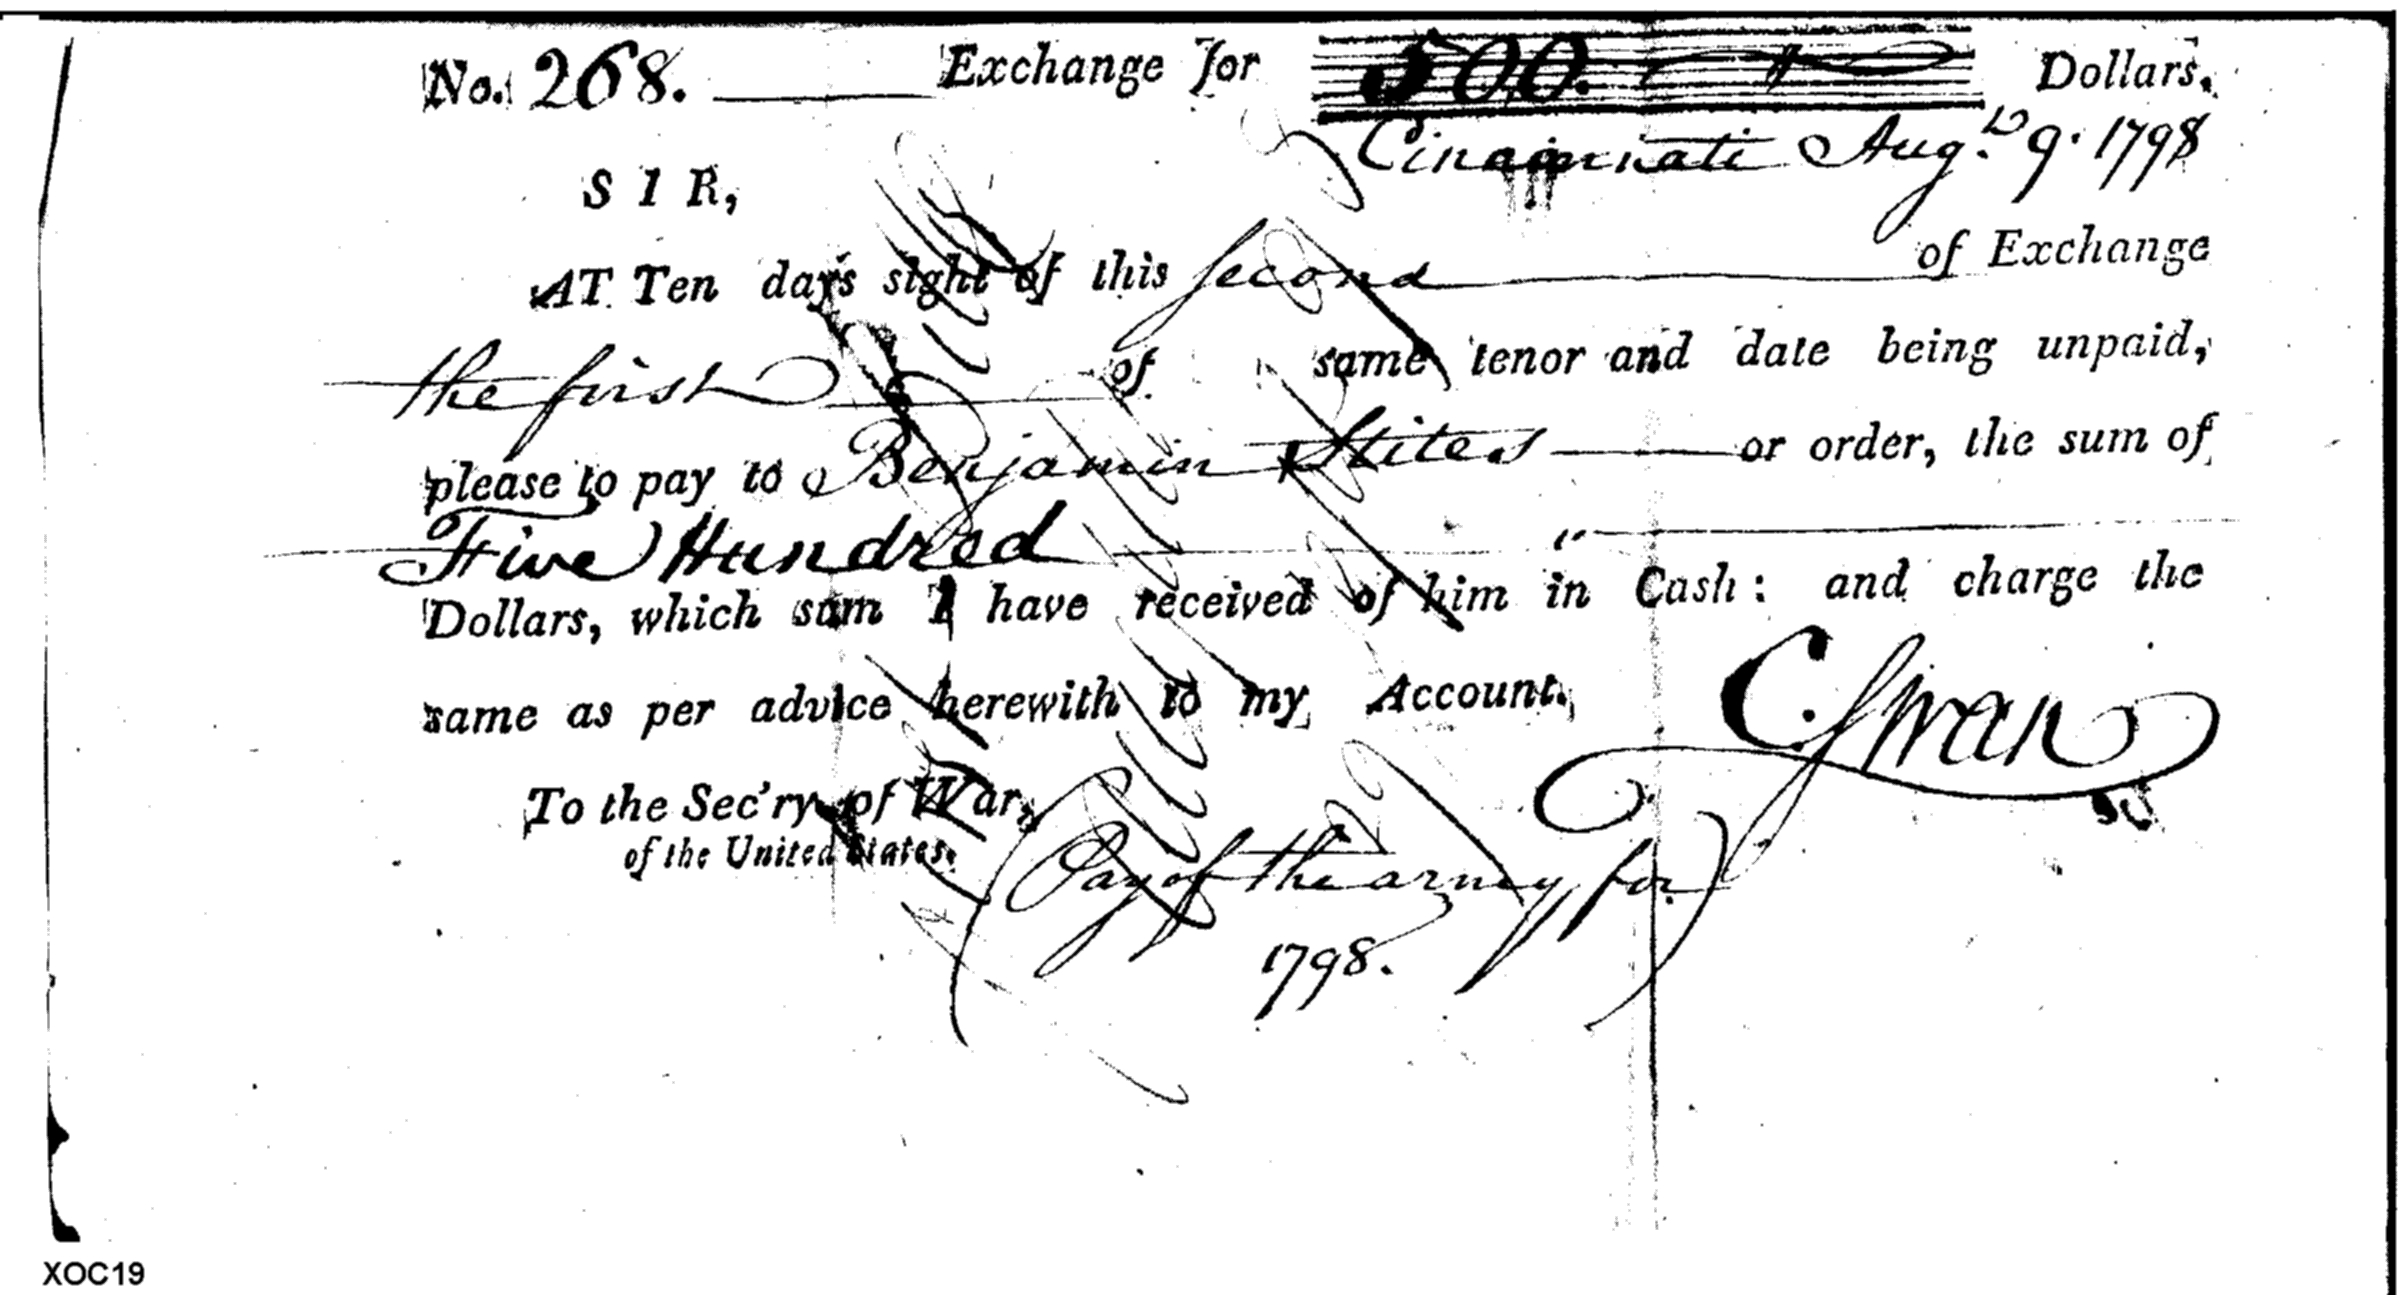 No. 268. Exchange for 500. Dollars.
Cincinnati Augt. 9. 1798
SIR,
AT Ten days sight of this second of Exchange
the first of same tenor and date being unpaid,
please to pay to Benjamin Stites or order, the sum of
Five Hundred
Dollars, which sum I have received of him in Cash: and charge the
same as per advice herewith to my Account.
C. Swan
To the Sec'ry of War,
of the United States.
Pay of the army for
1798.
XOC19